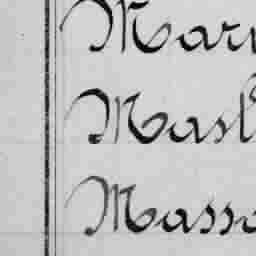 Mari
Masl
Masso